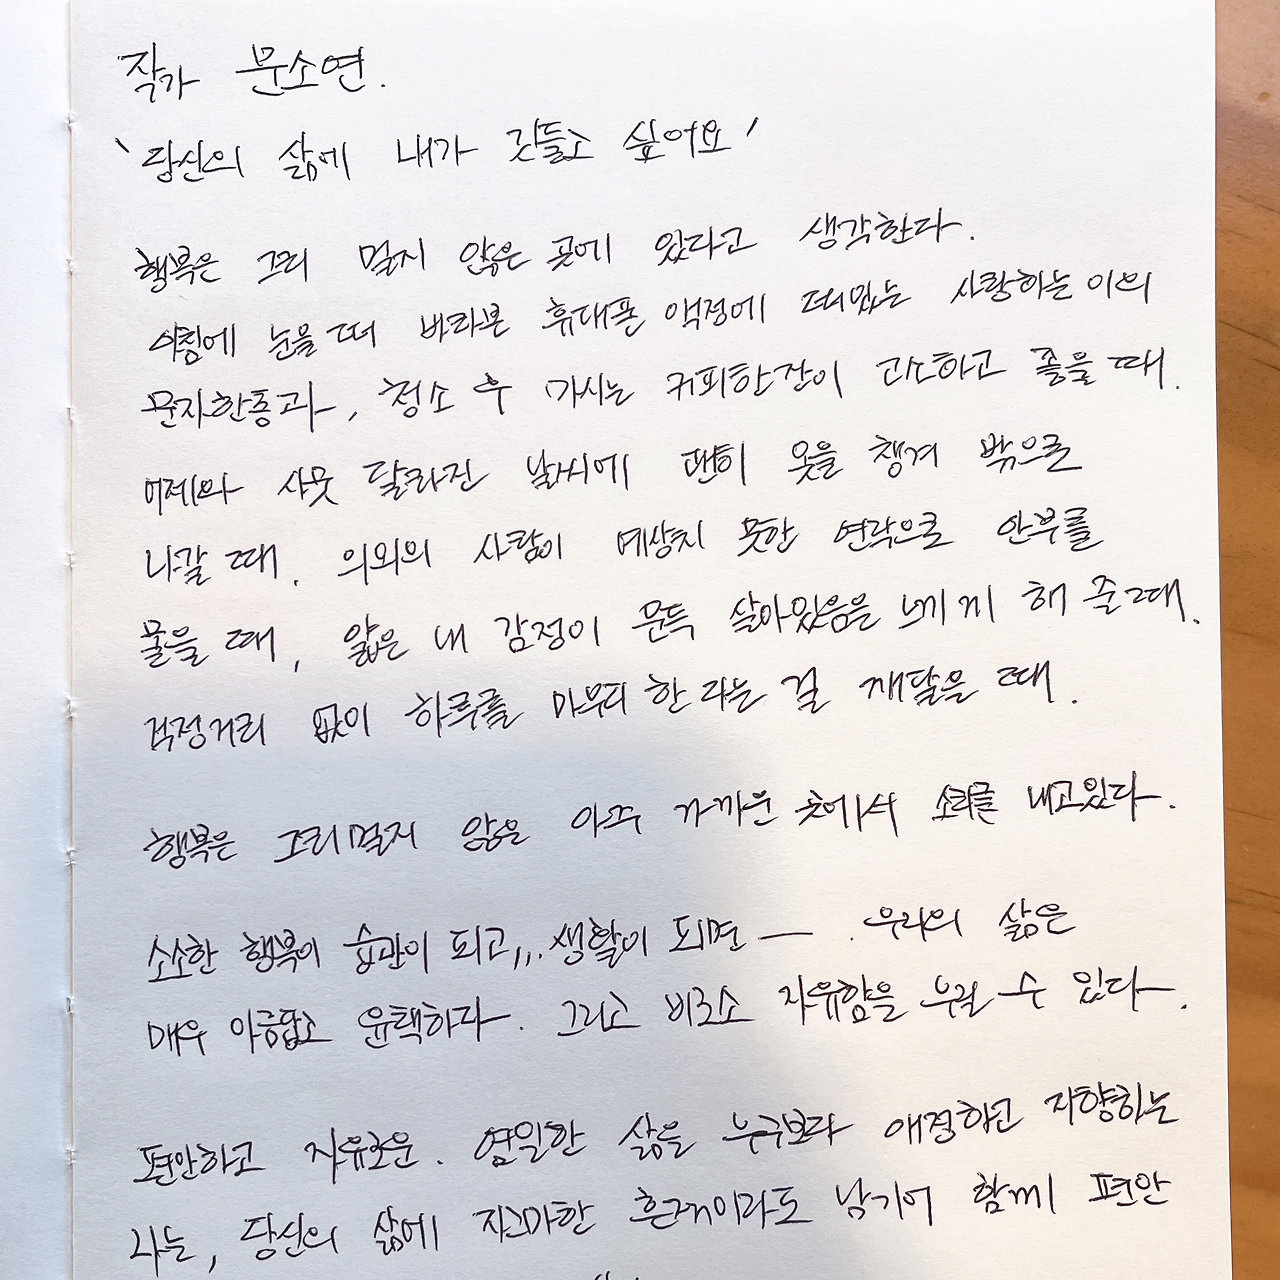 작가 문소연.
'당신의 삶에 내가 깃들고 싶어요'
행복은 그리 멀지 않은 곳에 있다고 생각한다.
아침에 눈을 떠 바라본 휴대폰 액정에 떠있는 사랑하는 이의
문자한통과, 청소 후 마시는 커피한잔이 고소하고 좋을 때.
어제와 사뭇 달라진 날씨에 괜히 옷을 챙겨 밖으로
나갈 때. 의외의 사람이 예상치 못한 연락으로 안부를
물을 때, 얇은 내 감정이 문득 살아있음을 느끼게 해 줄때.
걱정거리 없이 하루를 마무리 한다는 걸 깨달을 때.
행복은 그리멀지 않은 아주 가까운 곳에서 소리를 내고있다.
소소한 행복이 습관이 되고,,, 생활이 되면 — . 우리의 삶은
매우 아름답고 윤택하다. 그리고 비로소 자유함을 누릴 수 있다.
편안하고 자유로운. 열일한 삶을 누구보다 애정하고 지향하는
나는, 당신의 삶에 자그마한 흔적이라도 남기어 함께 편안